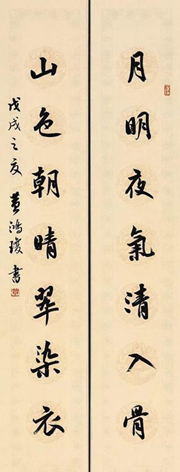 月明夜氣清入骨
山色朝晴翠染衣
戊戌之夏黄鴻瓊書